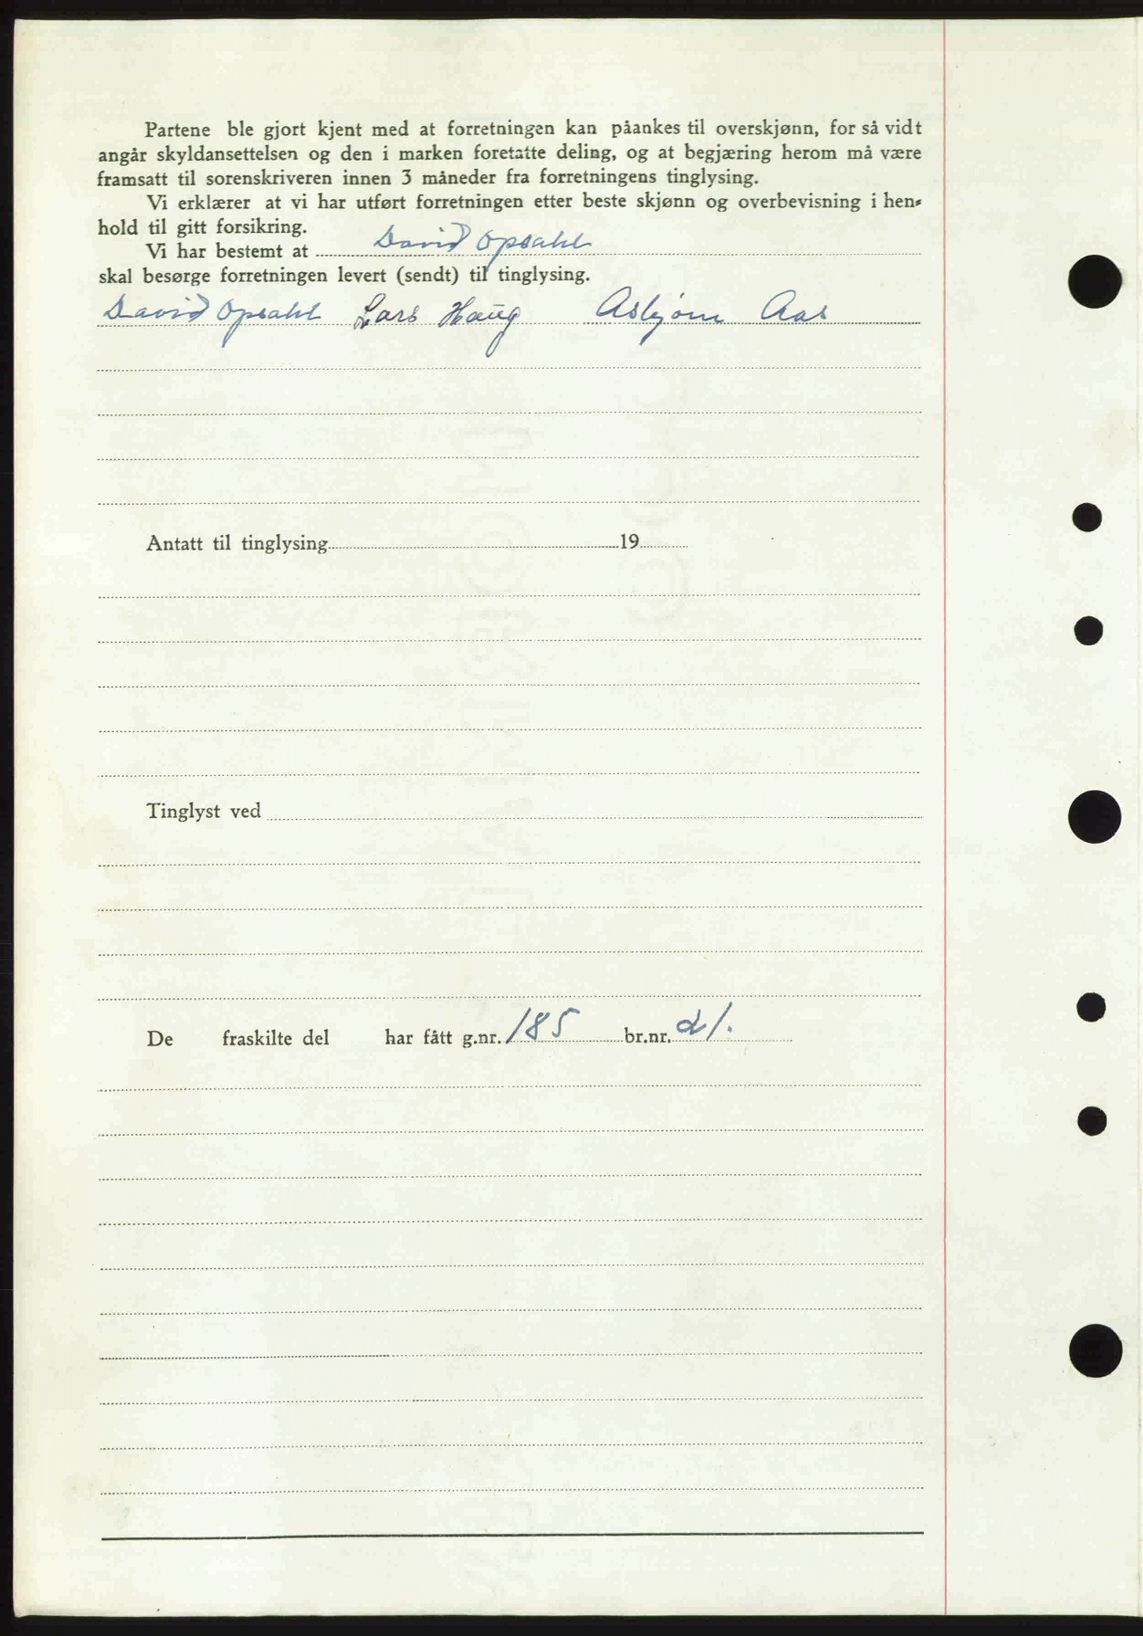 Partene ble gjort kjent med at forretningen kan påankes til overskjønn, for så vidt
angår skyldansettelsen og den i marken foretatte deling, og at begjæring herom må være
framsatt til sorenskriveren innen 3 måneder fra forretningens tinglysing.
Vi erklærer at vi har utført forretningen etter beste skjønn og overbevisning i hen-
hold til gitt forsikring.
Vi har bestemt at David Opsahl
skal besørge forretningen levert (sendt) til tinglysing.
David Opsahl Lars Haug Asbjørn Aas
Antatt til tinglysing 19
Tinglyst ved
De fraskilte del har fått g.nr. 185 br.nr. 21.